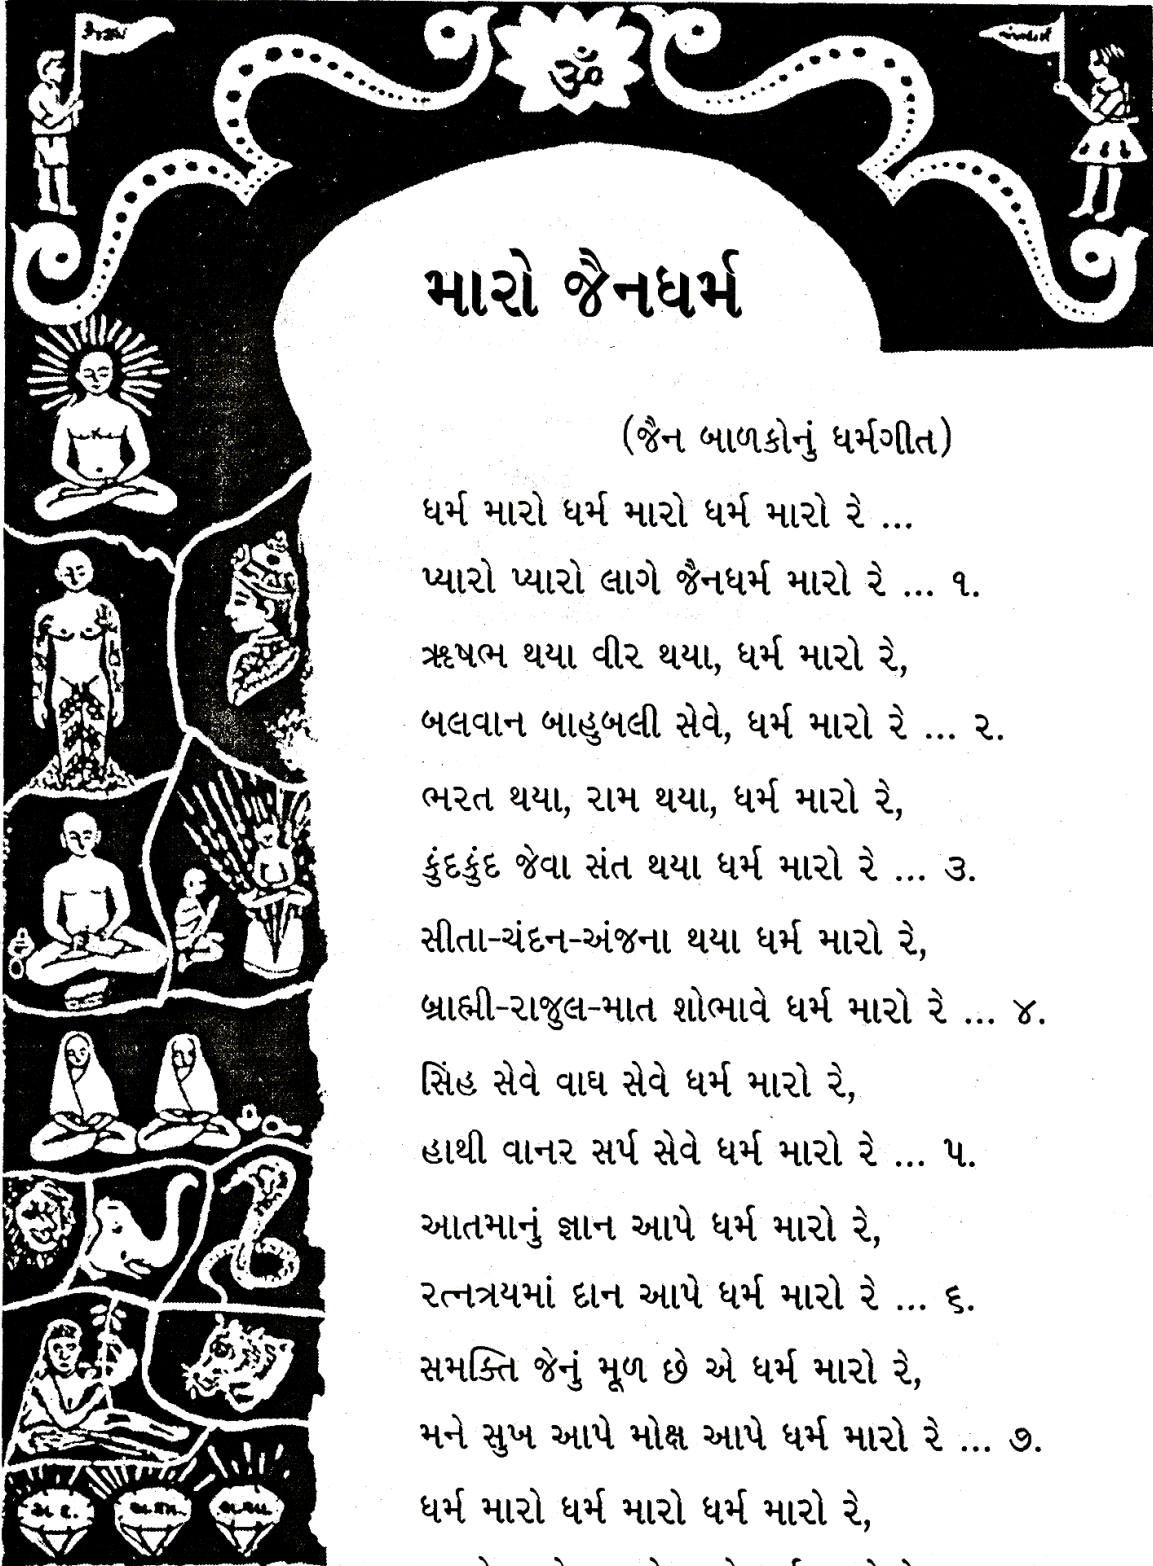 ૐ
મારો જૈનધર્મ
(જૈન બાળકોનું ધર્મગીત)
ધર્મ મારો ધર્મ મારો ધર્મ મારો રે ...
પ્યારો પ્યારો લાગે જૈનધર્મ મારો રે ... ૧.
ઋષભ થયા વીર થયા, ધર્મ મારો રે,
બલવાન બાહુબલી સેવે, ધર્મ મારો રે ... ૨.
ભરત થયા, રામ થયા, ધર્મ મારો રે,
કુંદકુંદ જેવા સંત થયા ધર્મ મારો રે ... ૩.
સીતા-ચંદન-અંજના થયા ધર્મ મારો રે,
બ્રાહ્મી-રાજુલ-માત શોભાવે ધર્મ મારો રે ... ૪.
સિંહ સેવે વાઘ સેવે ધર્મ મારો રે,
હાથી વાનર સર્પ સેવે ધર્મ મારો રે ... ૫.
આતમાનું જ્ઞાન આપે ધર્મ મારો રે,
રત્નત્રયમાં દાન આપે ધર્મ મારો રે ... ૬.
સમક્તિ જેનું મૂળ છે એ ધર્મ મારો રે,
મને સુખ આપે મોક્ષ આપે ધર્મ મારો રે ... ૭.
ધર્મ મારો ધર્મ મારો ધર્મ મારો રે,